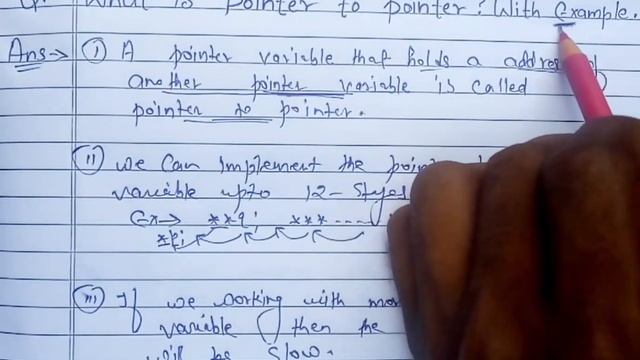 Q. What is pointer to pointer? With Example.
Ans→ (i) A pointer variable that holds a address of
another pointer variable is called
pointer to pointer.
(ii) we can implement the
variable upto 12-
Ex→ **q; ***---
*p;
(iii) If we working with
variable then the
will be slow.